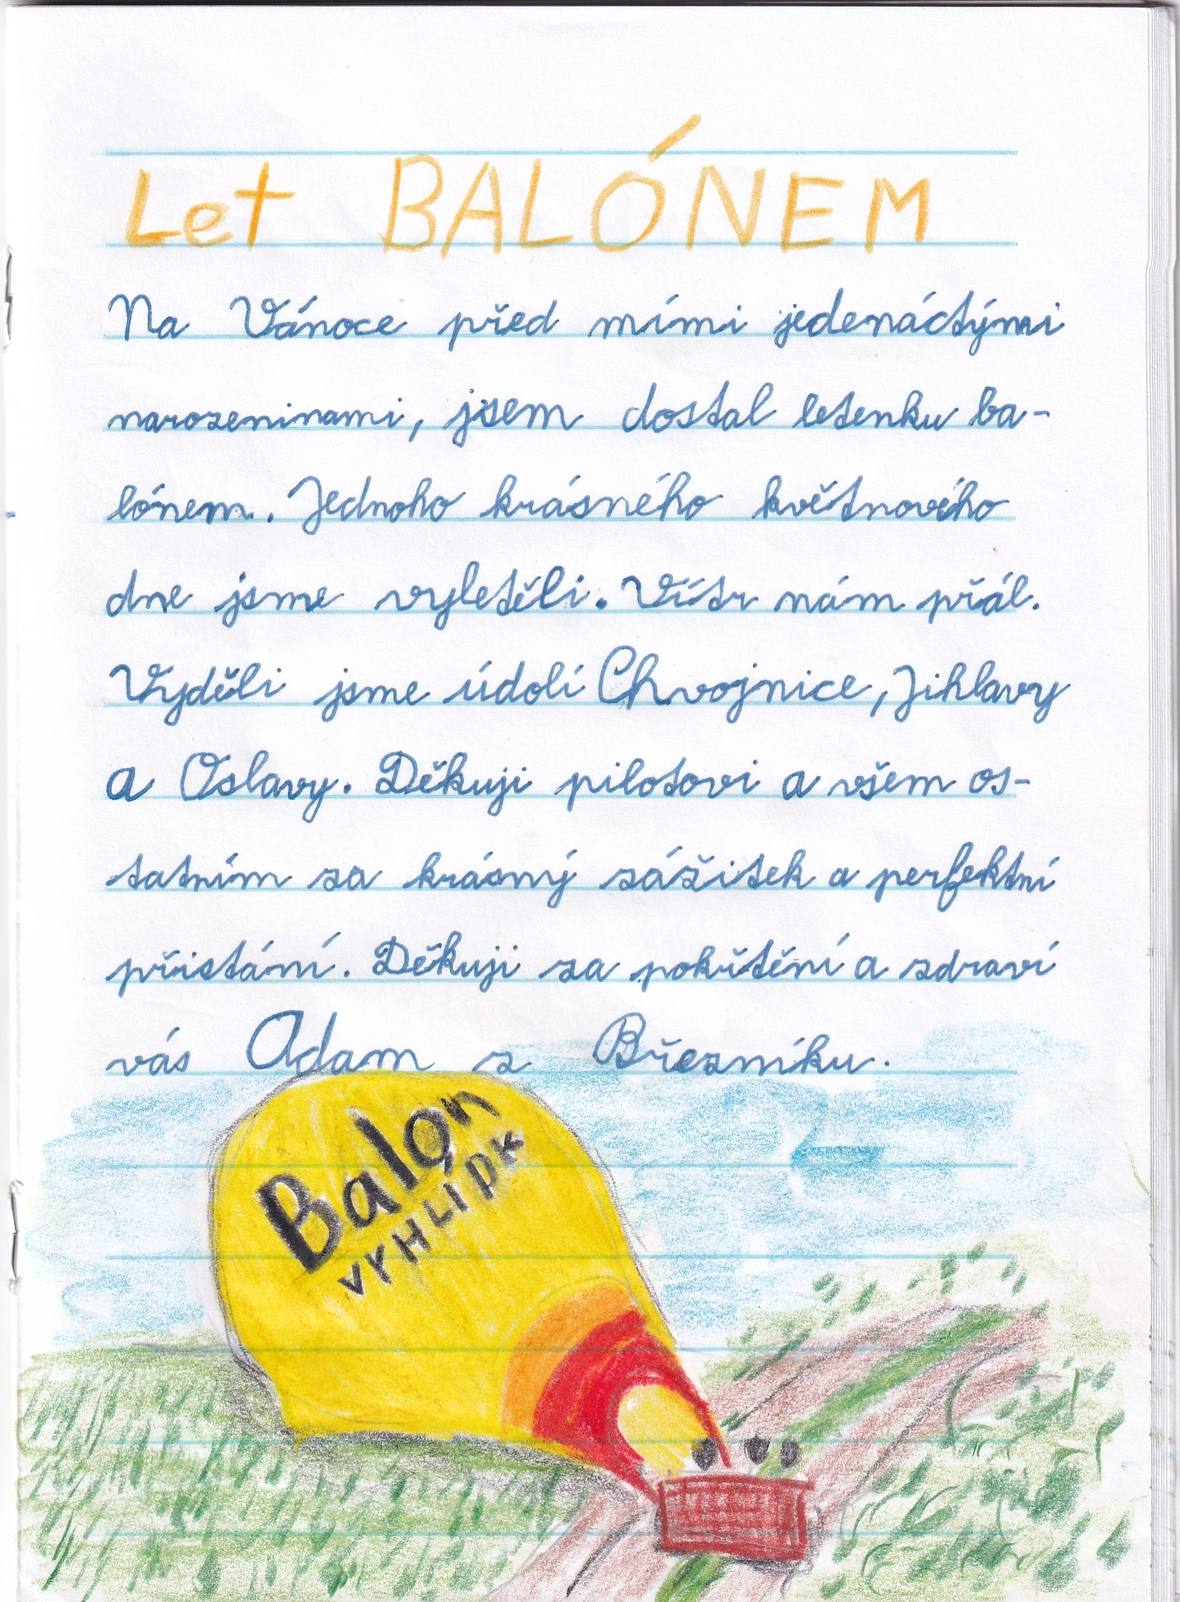 Let BALÓNEM
Na Vánoce před mími jedenáctými
narozeninami, jsem dostal letenku ba-
lónem. Jednoho krásného květnového
dne jsme vyletěli. Vítr nám přál.
Vyděli jsme údolí Chvojnice, Jihlavy
a Oslavy. Děkuji pilotovi a všem os-
tatním za krásný zážitek a perfektní
přistání. Děkuji za pokřtění a zdraví
vás Adam z Březníku.
Balón